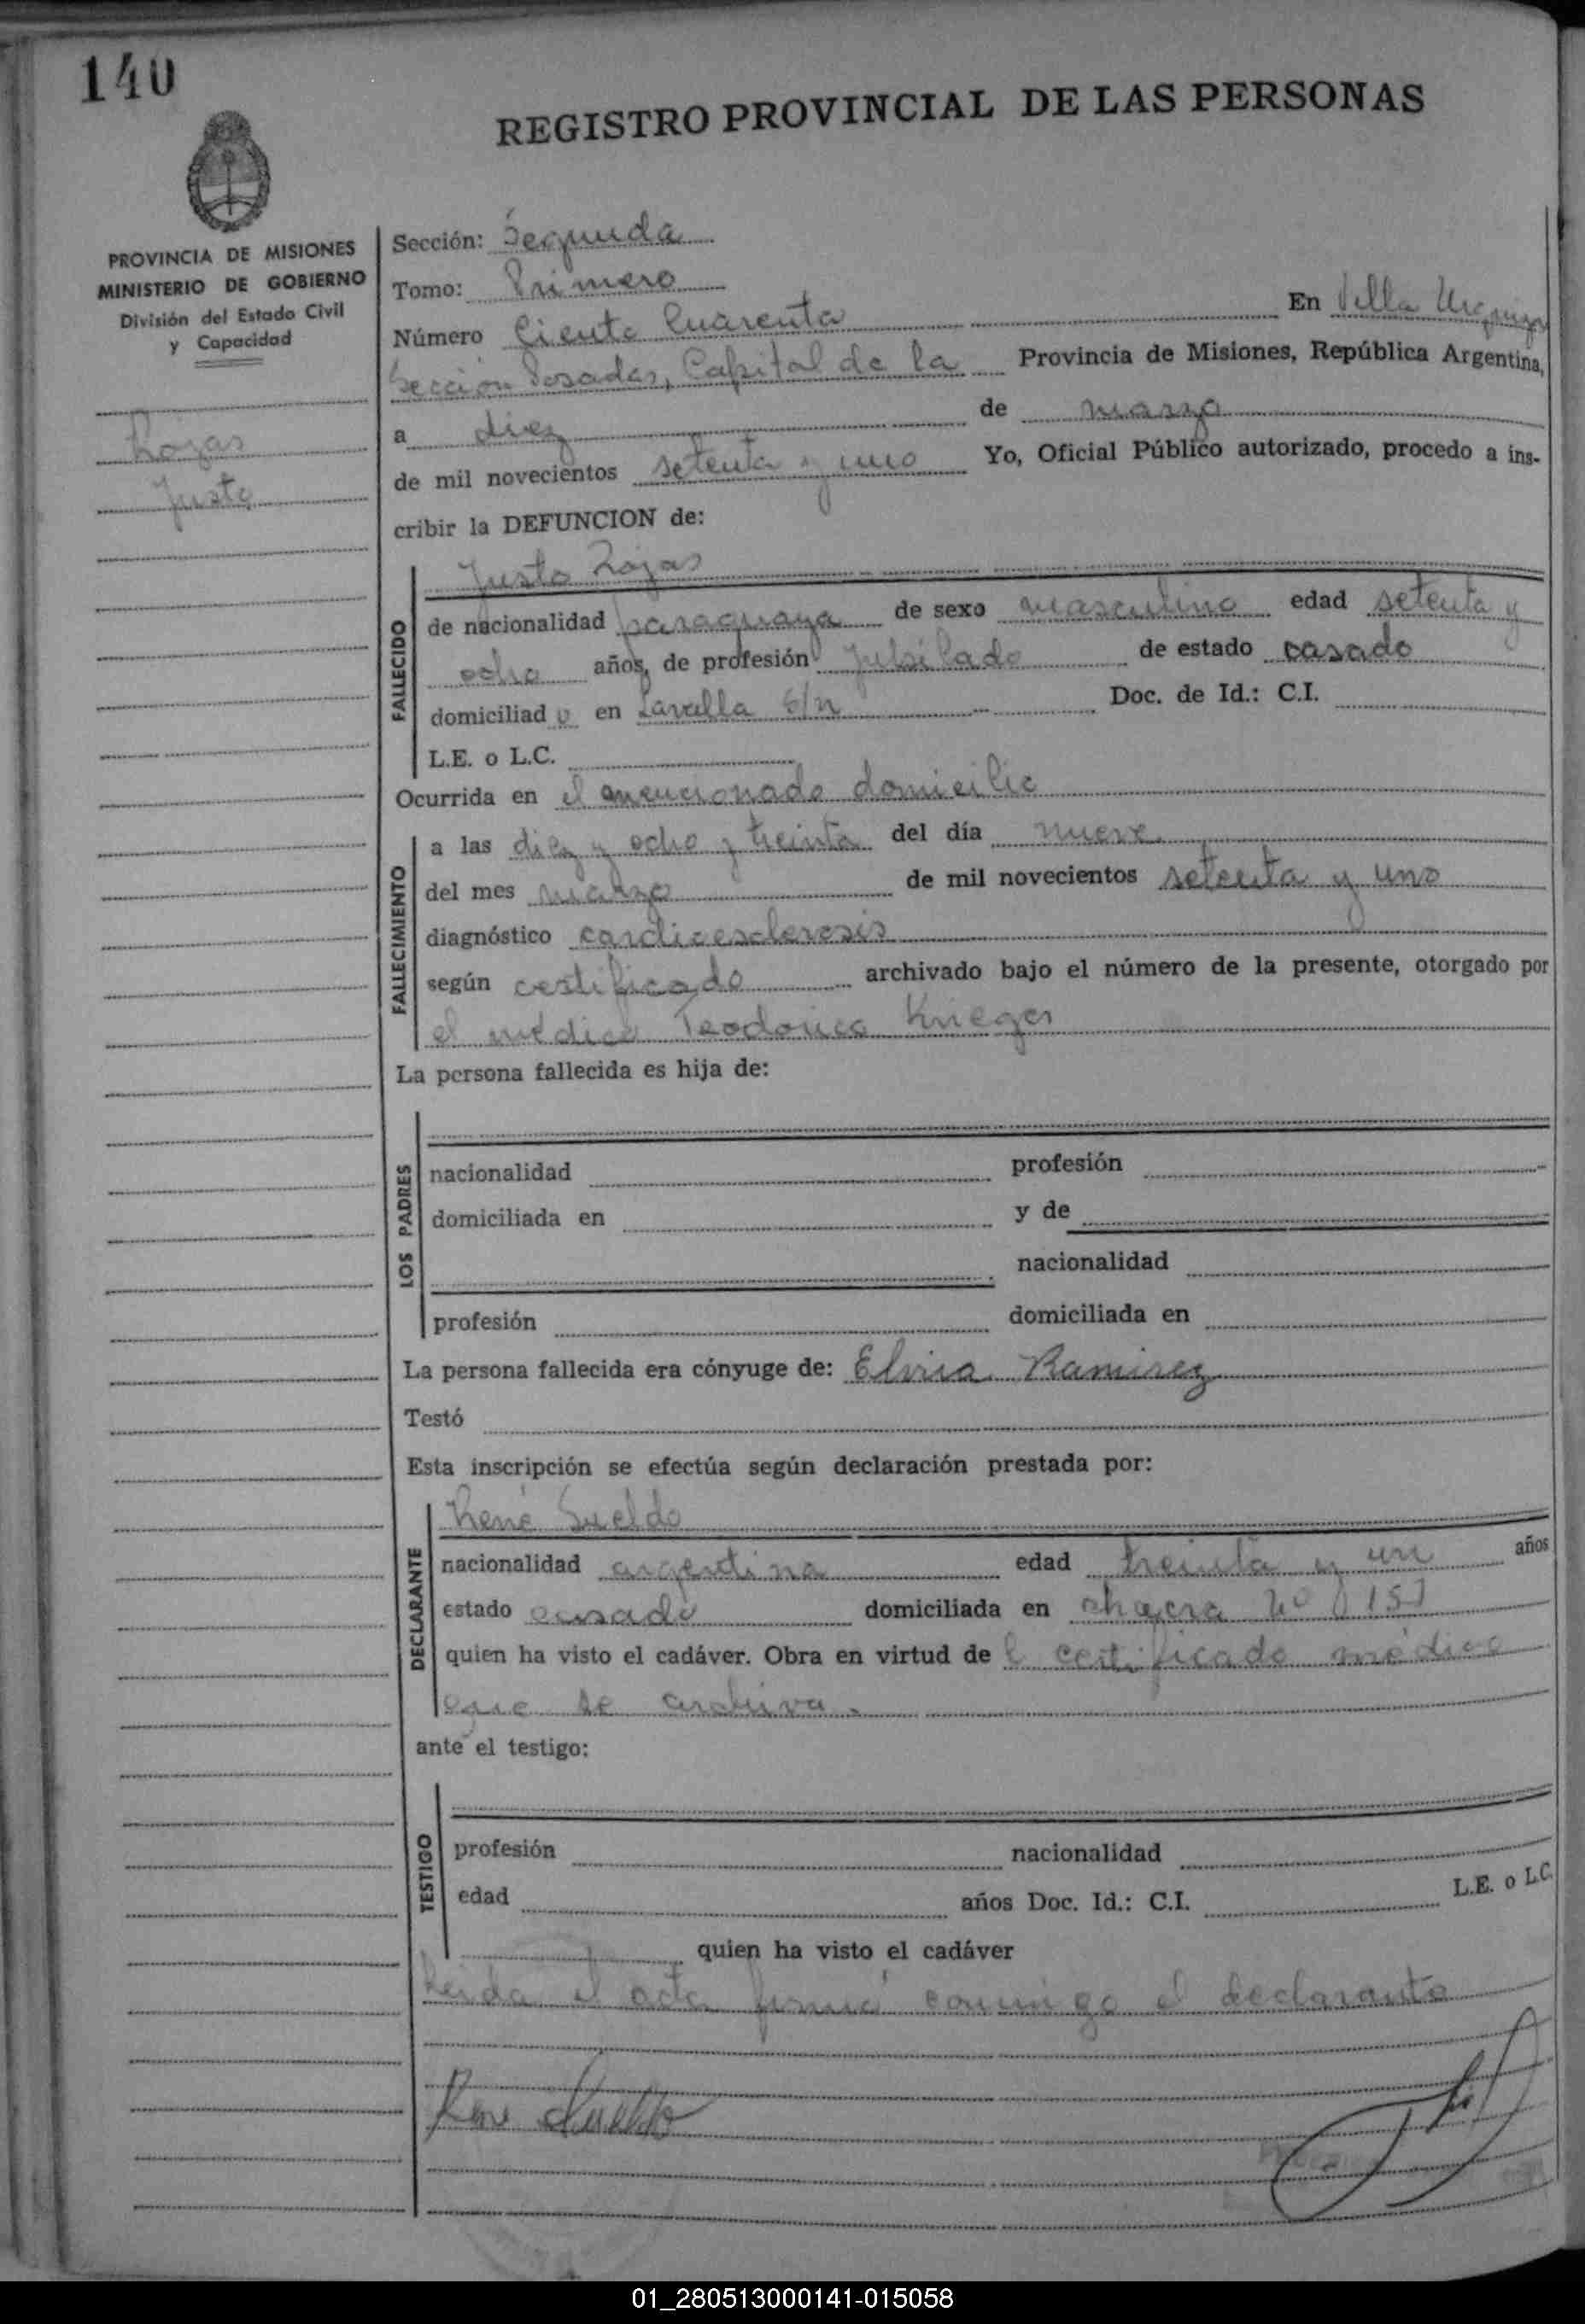 140
REGISTRO PROVINCIAL DE LAS PERSONAS
PROVINCIA DE MISIONES
MINISTERIO DE GOBIERNO
División del Estado Civil
y Capacidad
Rojas
Justo
Sección: Segunda
Tomo: Primero
Número Ciento Cuarenta En Villa Urquiza
Sección Posadas, Capital de la Provincia de Misiones, República Argentina,
a diez de marzo
de mil novecientos setenta y uno Yo, Oficial Público autorizado, procedo a ins-
cribir la DEFUNCION de:
Justo Rojas
FALLECIDO
de nacionalidad paraguaya de sexo masculino edad setenta y
ocho años, de profesión jubilado de estado casado
domiciliado en Lavalle S/n Doc. de Id.: C.I.
L.E. o L.C.
Ocurrida en el mencionado domicilio
FALLECIMIENTO
a las diez y ocho y treinta del día nueve
del mes marzo de mil novecientos setenta y uno
diagnóstico cardioesclerosis
según certificado archivado bajo el número de la presente, otorgado por
el médico Teodorico Krieger
La persona fallecida es hija de:
LOS PADRES
nacionalidad profesión
domiciliada en y de
nacionalidad
profesión domiciliada en
La persona fallecida era cónyuge de: Elvira Ramirez
Testó
Esta inscripción se efectúa según declaración prestada por:
René Sueldo
DECLARANTE
nacionalidad argentina edad treinta y un años
estado casado domiciliada en chacra Nº 151
quien ha visto el cadáver. Obra en virtud de l certificado médico
que se archiva.
ante el testigo:
TESTIGO
profesión nacionalidad
edad años Doc. Id.: C.I. L.E. o L.C.
quien ha visto el cadáver
Leida el acta firmó conmigo el declarante
Rene Sueldo
01_280513000141-015058